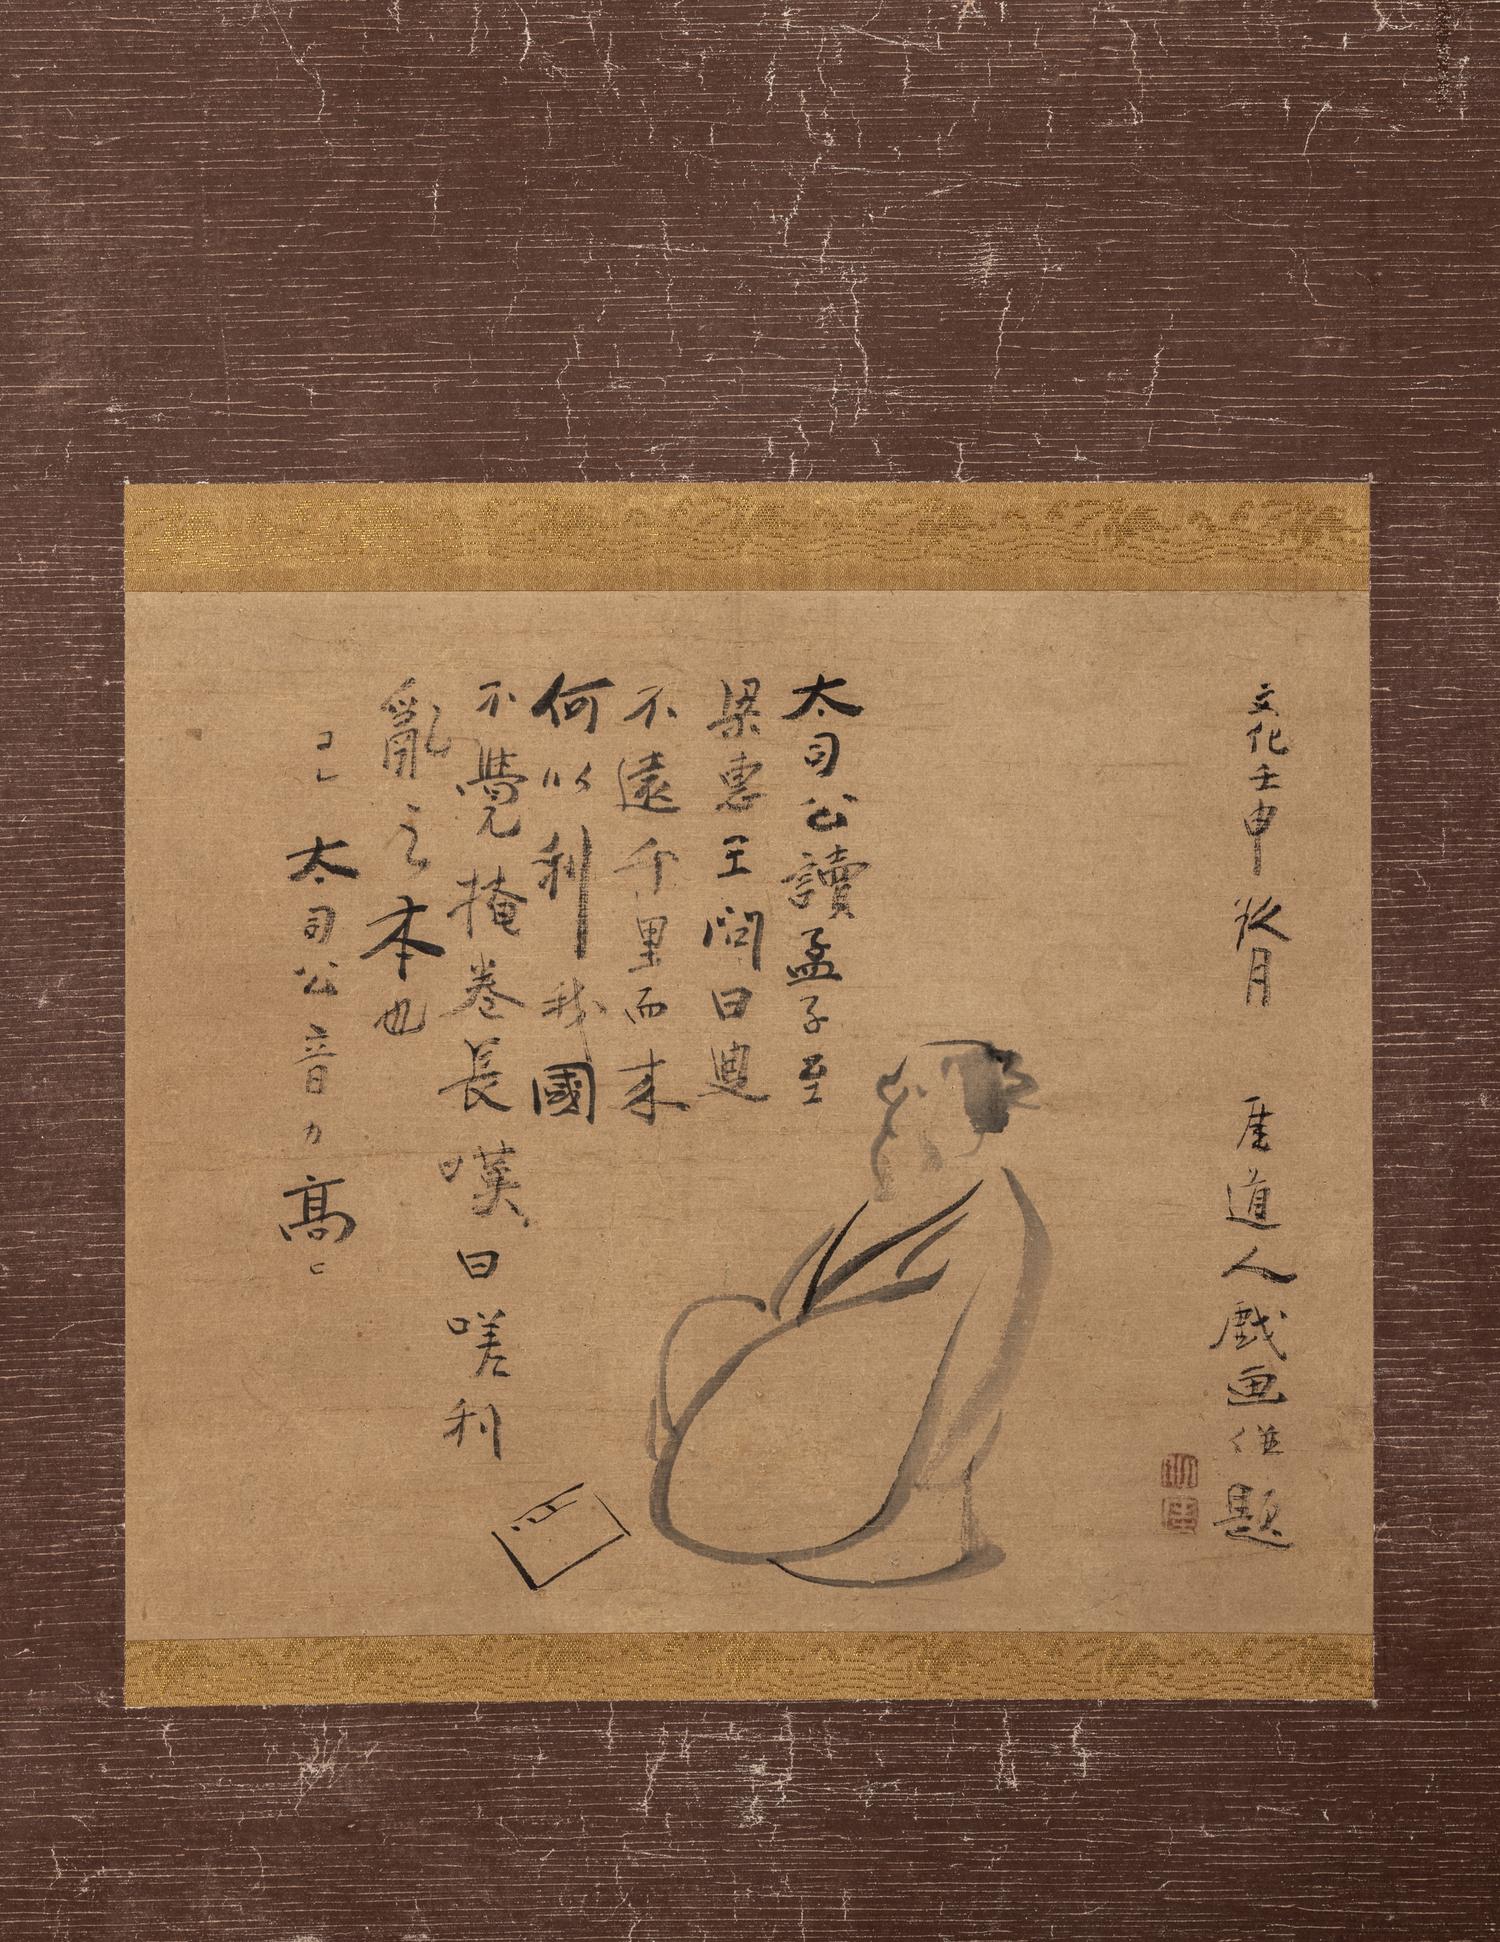 文化壬申秋月 厓道人戯画併題
太司公讀孟子至
梁惠王問曰叟
不遠千里而来
何以利我國
不覺掩巻長嘆曰嗟利
亂之本也
コレ太司公音カ高ヒ